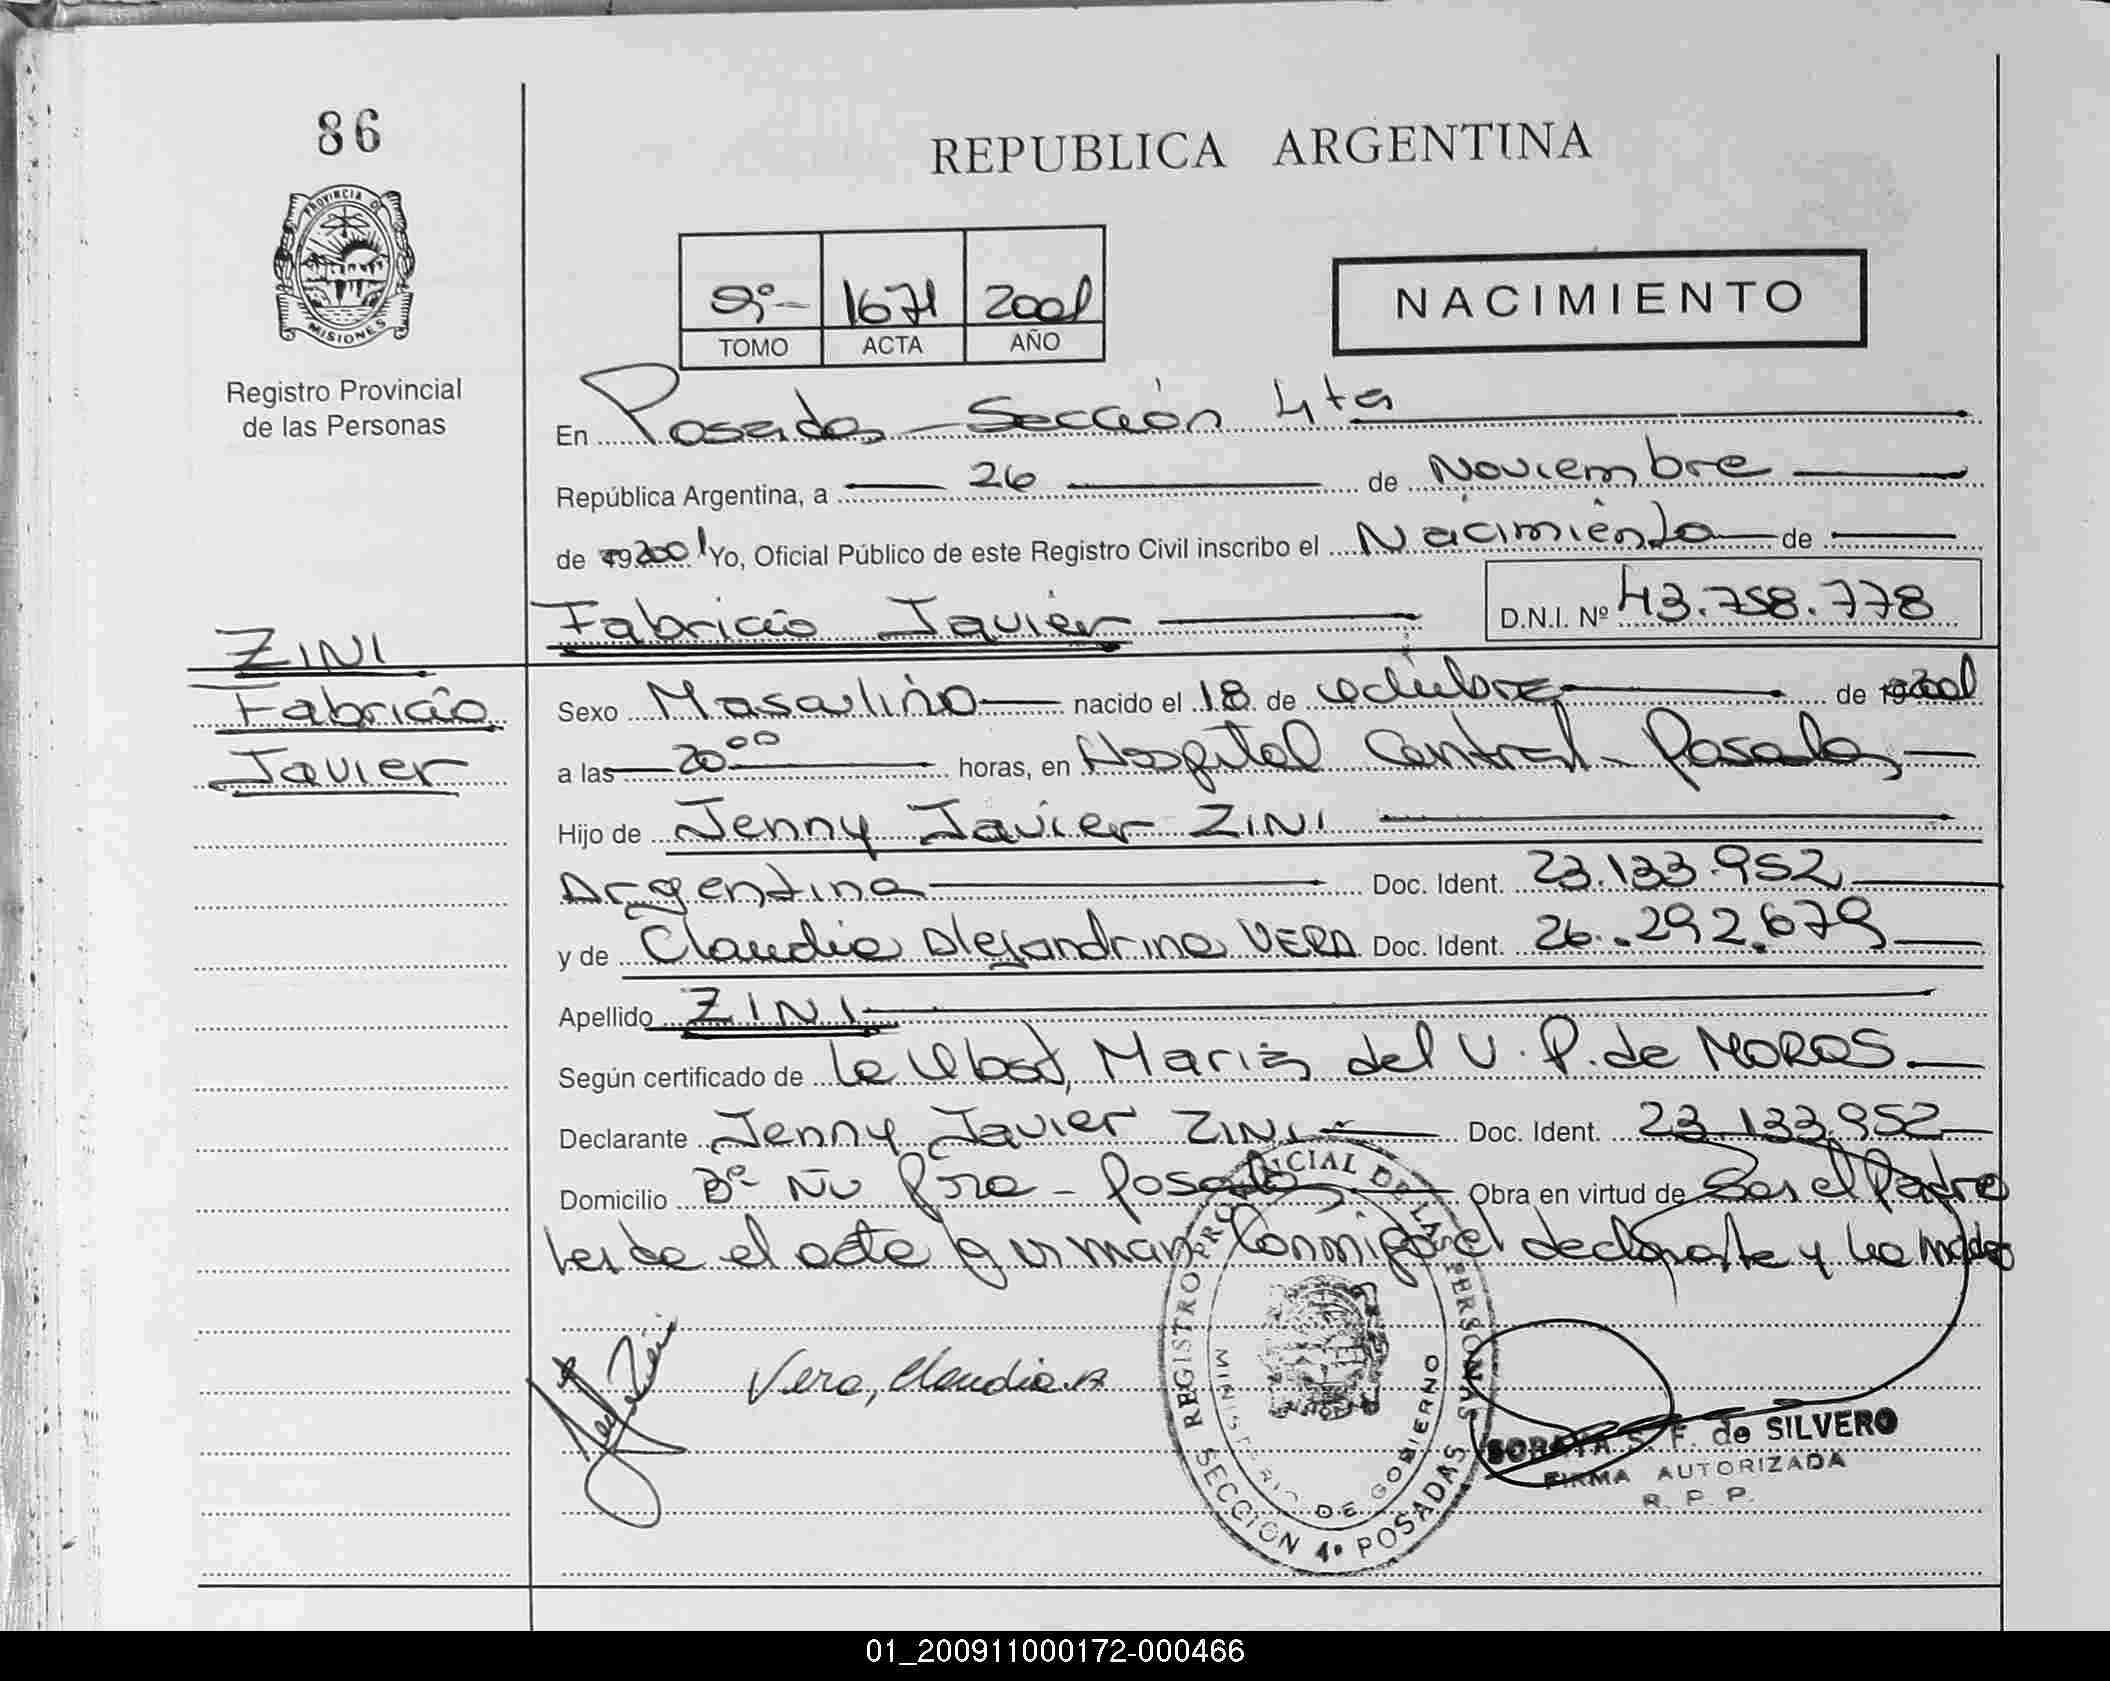 86
REPUBLICA ARGENTINA
PROVINCIA D
MISIONES
Registro Provincial
de las Personas
9º- 1671 2001
TOMO ACTA AÑO
NACIMIENTO
En Posadas - Sección 4ta
República Argentina, a 26 de Noviembre
de 192001 Yo, Oficial Público de este Registro Civil inscribo el Nacimiento de
Fabricio Javier D.N.I. Nº 43.758.778
ZINI
Fabricio
Javier
Sexo Masculino nacido el 18 de octubre de 192001
a las 20⁰⁰ horas, en Hospital Central - Posadas
Hijo de Jenny Javier ZINI
Argentina Doc. Ident. 23.133.952
y de Claudia Alejandrina VERA Doc. Ident. 26.292.679
Apellido ZINI
Según certificado de la Obst, María del V. P. de MOROS
Declarante Jenny Javier ZINI Doc. Ident. 23.133.952
Domicilio Bº Ñu Pora - Posadas Obra en virtud de Ser el Padre
Leida el acta firman conmigo el declarante y la madre
Vera, Claudia A
REGISTRO PROVINCIAL DE LAS PERSONAS
MINISTERIO DE GOBIERNO
SECCION 4º POSADAS
SORAYA S. F. de SILVERO
FIRMA AUTORIZADA
R. P. P.
01_200911000172-000466